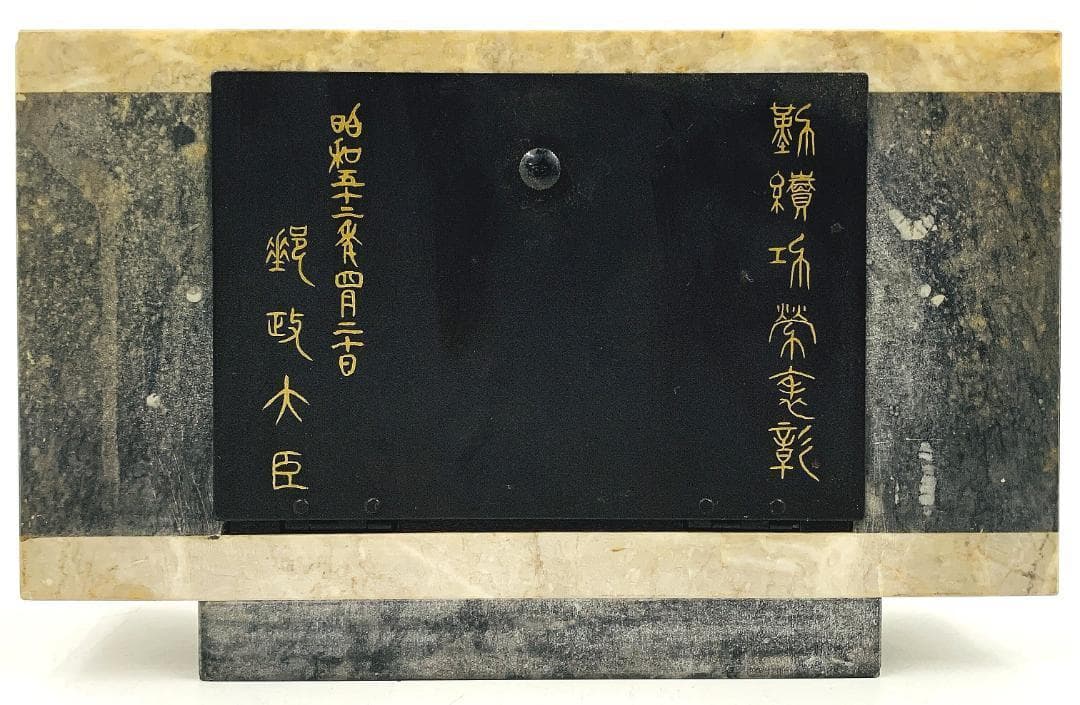 勤續功勞表彰
昭和五十二年四月二十日
郵政大臣